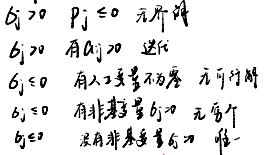 σj>0 Pj≤0 无界解
σj>0 有aij>0 迭代
σj≤0 有人工变量不为零 无可行解
σj≤0 有非基变量σj=0 无穷个
σj≤0 没有非基变量σj=0 唯一